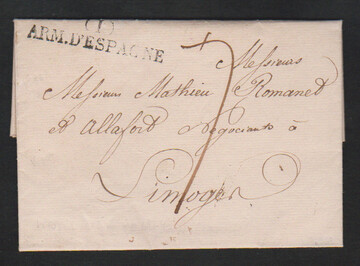 (1)
ARM.D'ESPAGNE
Messieurs
Messieurs Mathieu Romanet
et Allafort Negociants à
Limoges
7